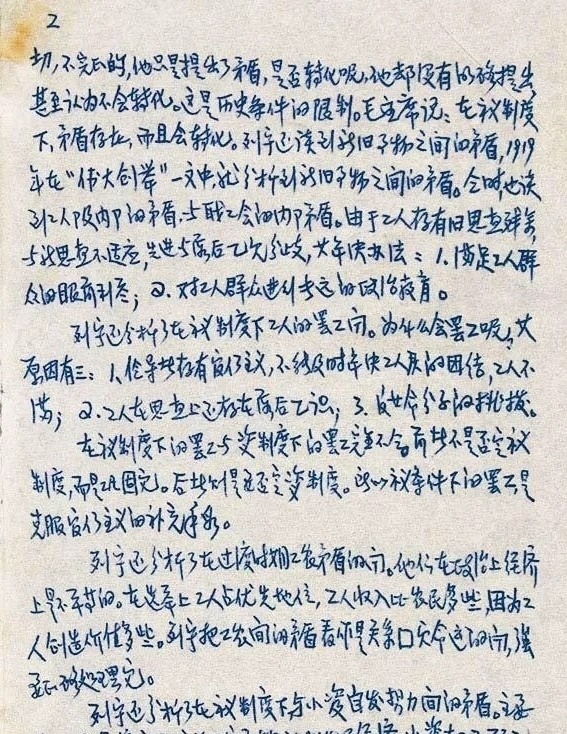 2
切,不完正的,他只是提出了矛盾,是否转化呢,他却没有明确提出,
甚至认为不会转化。这是历史条件的限制。毛主席说:在议制度
下,矛盾存在,而且会转化。列宁还谈到新旧事物之间的矛盾,1919
年在“伟大创举”一文中,就分析到新旧事物之间的矛盾。同时,也谈
到工人阶级内部的矛盾,与职工会的内部矛盾。由于工人存有旧思想残余,
与新思想不适应,先进与落后之分,其解决办法:1.满足工人群
众的眼前利益;2.对工人群众进行长远的政治教育。
列宁还分析了在议制度下工人的罢工问。为什么会罢工呢,其
原因有三:1.领导者存有官僚主义,不能及时解决工人的团结,工人不
满;2.工人在思想上还存在落后意识;3.反革命分子的挑拨。
在议制度下的罢工与资制度下的罢工完全不同,前者不是否定议
制度,而是巩固它。后者则是否定资制度。所以议条件下的罢工是
克服官僚主义的补充手段。
列宁还分析了在过渡时期工农矛盾的问。他们在政治上经济
上是不等的。在选举上工人占优先地位,工人收入比农民多些,因为工
人创造价值多些。列宁把工农间的矛盾看作是关系革命命运的问,强
正确处理它。
列宁还分析了在议制度下与小资自发势力间的矛盾。主要